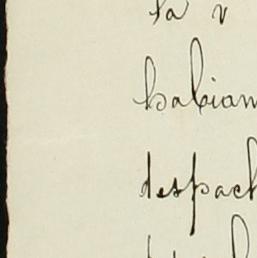 ta v
habian
despach